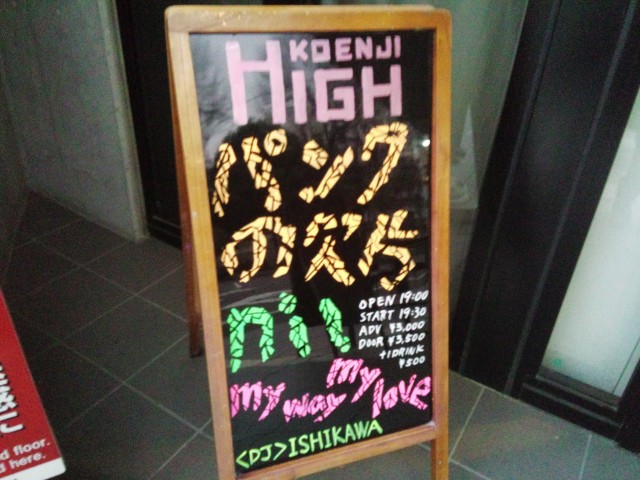 KOENJI
HIGH
パンク
の欠片
nil
OPEN 19:00
START 19:30
ADV ¥3,000
DOOR ¥3,500
+1DRINK
¥500
my way my love
<DJ>ISHIKAWA
d floor.
d here.